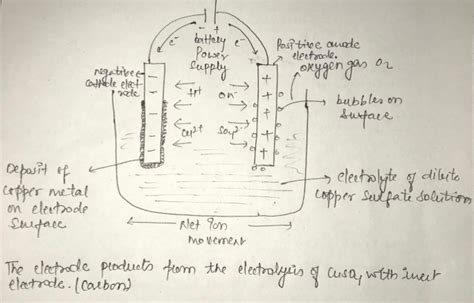 - +
e⁻ battery e⁻
Power
Supply
Positive anode
electrode.
oxygen gas O₂
negative
cathode elect
rode
H+ OH⁻
Cu²⁺ SO₄²⁻
bubbles on
Surface
Deposit of
copper metal
on electrode
Surface
electrolyte of dilute
copper sulfate solution
Net ion
movement
The electrode products from the electrolysis of CuSO₄ with inert
electrode. (Carbon)